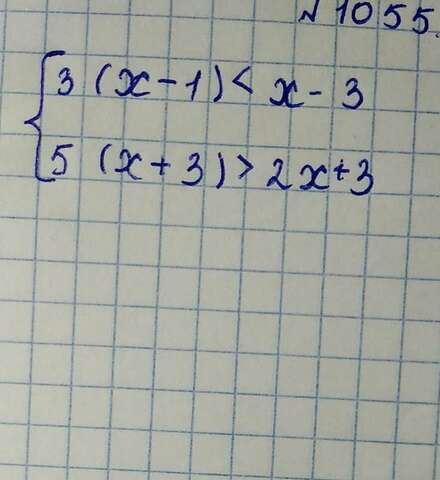 №1055.
3 (x-1) < x-3
5 (x+3) > 2x+3